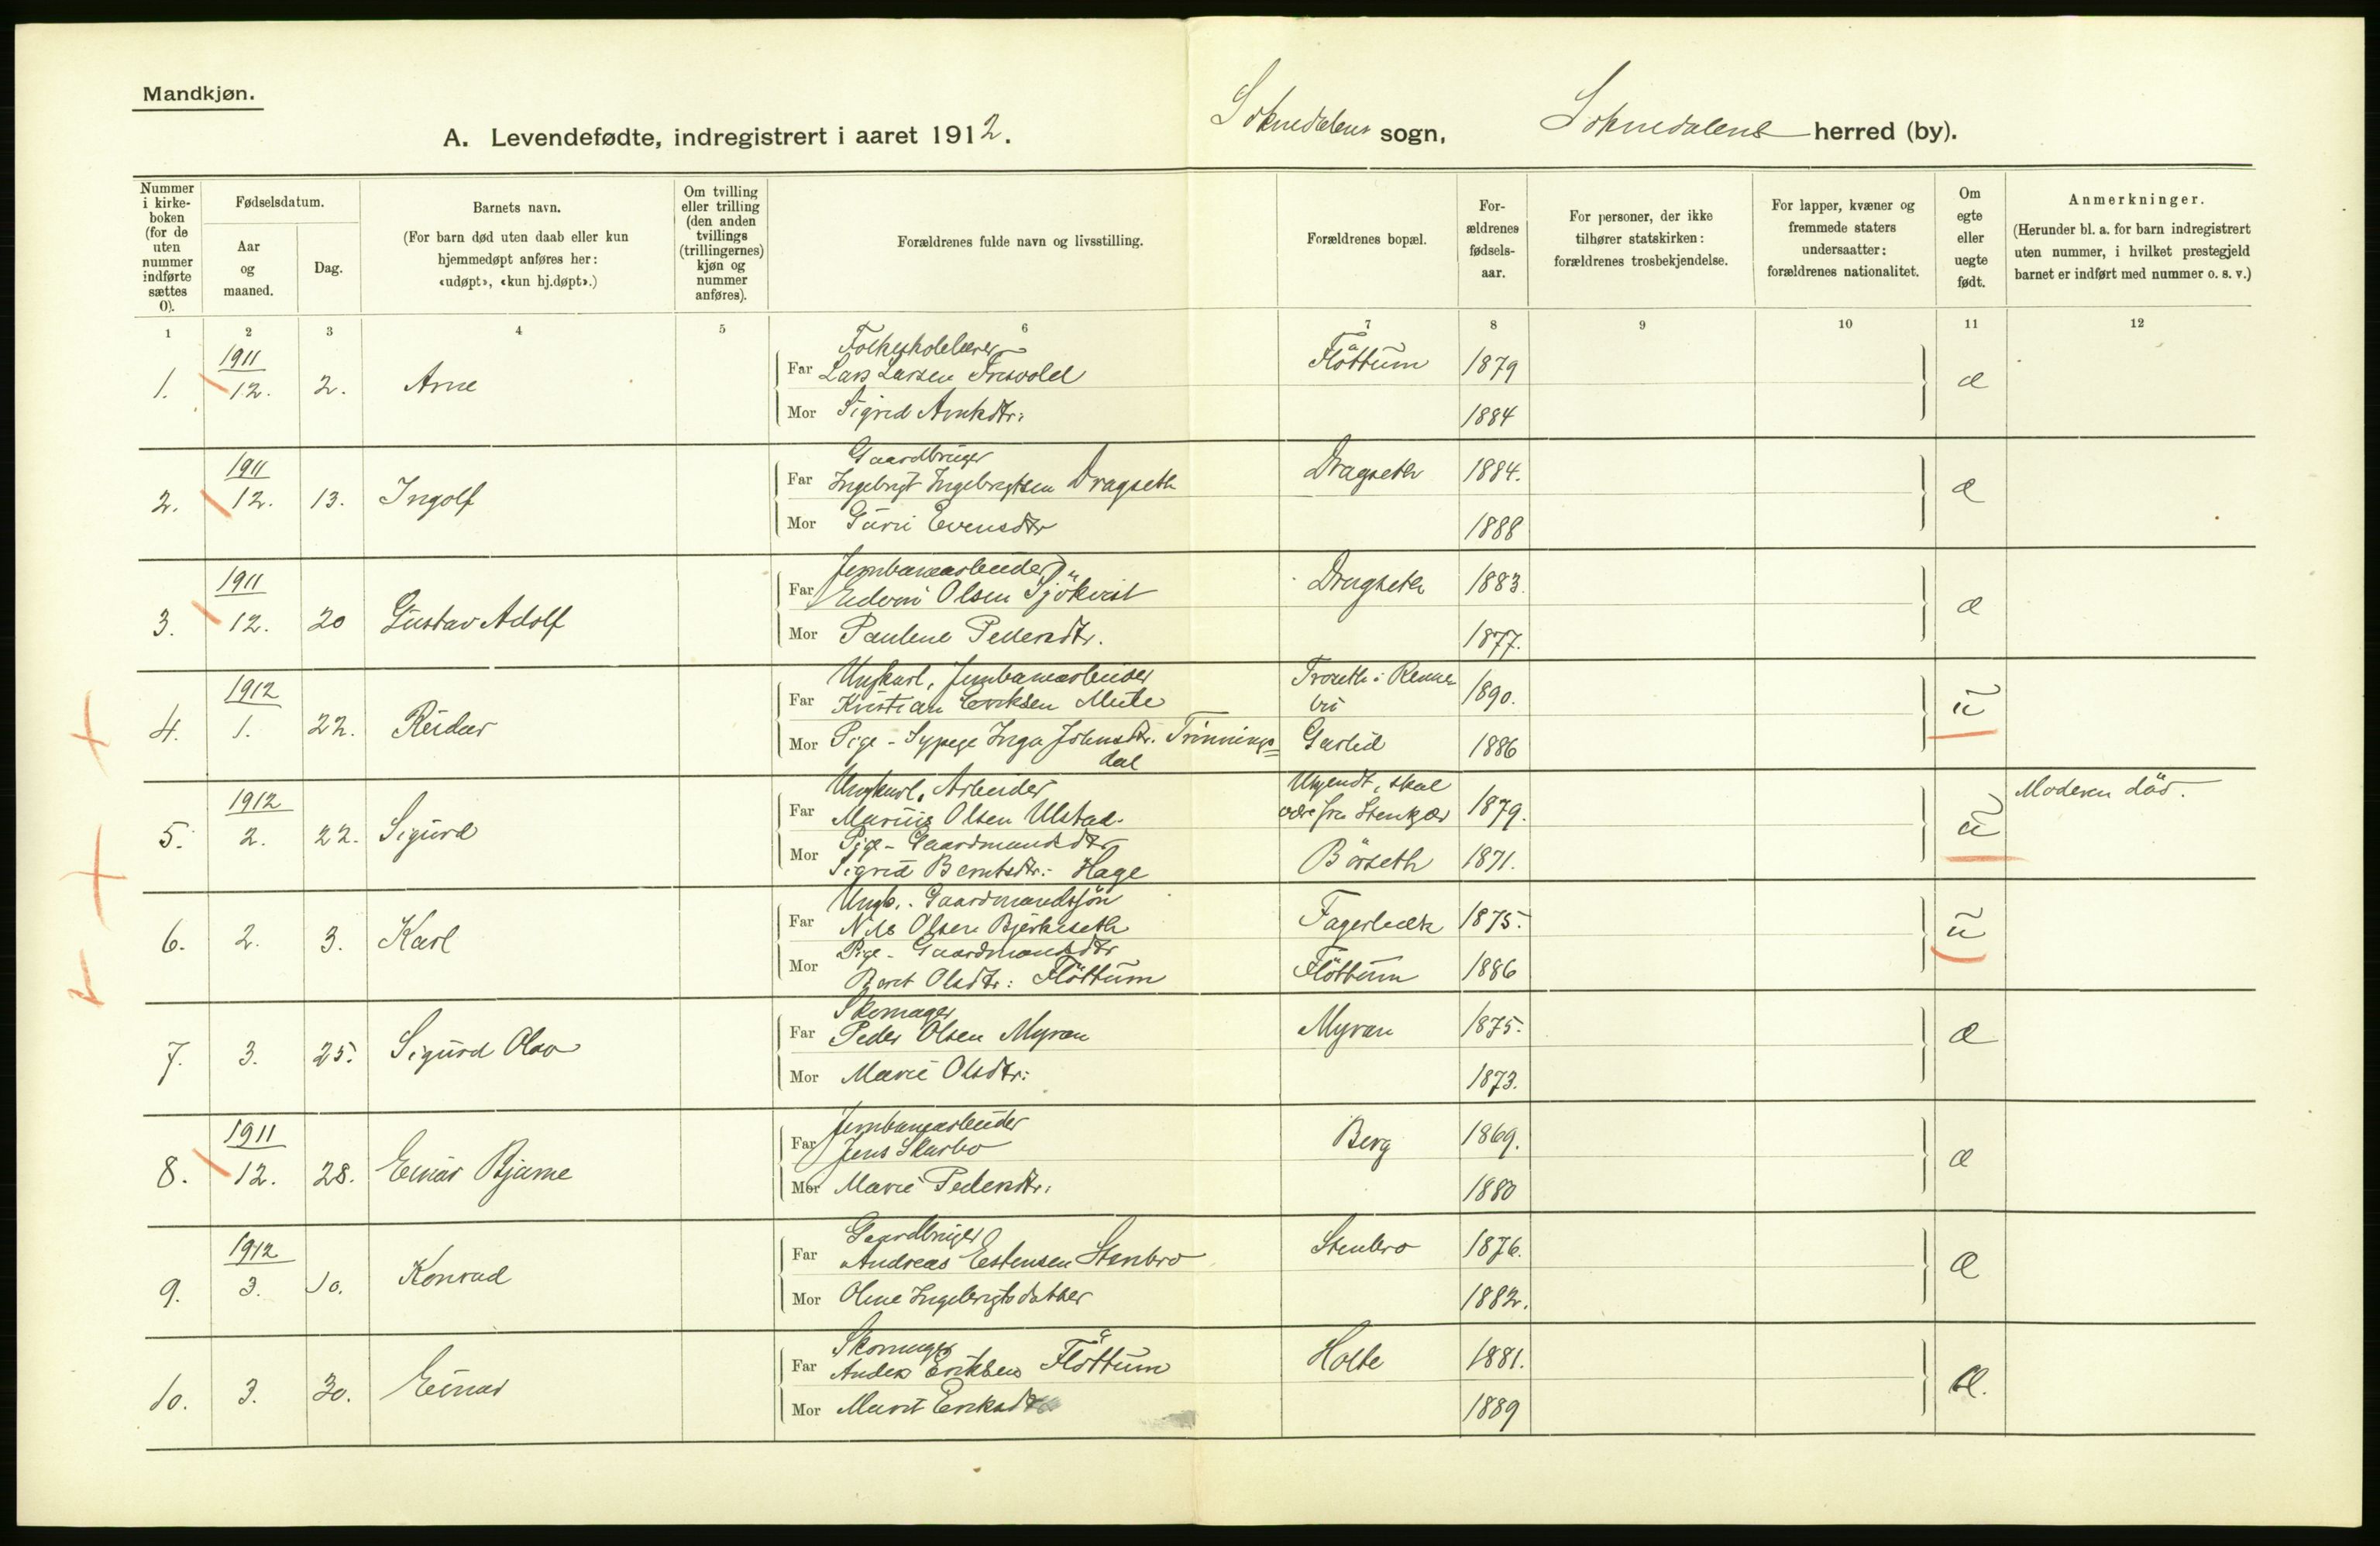 Mandkjøn.
A. Levendefødte, indregistrert i aaret 1912.
Soknedalens sogn, Soknedalens herred (by).
Nummer i kirke-boken (for de uten nummer indførte sættes 0).
Fødselsdatum.
Aar og maaned.
Dag.
Barnets navn.
(For barn død uten daab eller kun hjemmedøpt anføres her: «udøpt», «kun hj.døpt».)
Om tvilling eller trilling (den anden tvillings (trillingernes) kjøn og nummer anføres).
Forældrenes fulde navn og livsstilling.
Forældrenes bopæl.
For-ældrenes fødsels-aar.
For personer, der ikke tilhører statskirken: forældrenes trosbekjendelse.
For lapper, kvæner og fremmede staters undersaatter: forældrenes nationalitet.
Om egte eller uegte født.
Anmerkninger.
(Herunder bl. a. for barn indregistrert uten nummer, i hvilket prestegjeld barnet er indført med nummer o. s. v.)
1 2 3 4 5 6 7 8 9 10 11 12
1911
Folkeskolelærer
1. 12. 2. Arne Far Lars Larsen Fløttum 1879 æ
Mor Sigrid 1884
1911
Gaardbruger
2. 12. 13. Ingolf Far Ingebrigt Ingebrigtsen Dragseth Dragseth 1884. æ
Mor Guri Evensdtr 1888
1911
Jernbanearbeider
3. 12. 20 Gustav Adolf Far Olsen Sjökvist Dragseth 1883. æ
Mor Pauline Pedersdtr. 1877.
1912
Ungkarl, Jernbanearbeider Troseth i Renne
4. 1. 22. Reidar Far Kristian Eriksen Mule bu 1890. u
Mor Pige - Sypige Inga Johnsdtr. Trinnings= Garlid 1886
dal
1912
Ungkarl, Arbeider Ukjendt, skal Moderen död.
5. 2. 22. Sigurd Far Marius Olsen Ulstad være fra Stenkjær 1879. u
Mor Pige - Gaardmandsdtr
Sigrid Berntsdtr: Hage Börseth 1871.
Ungk. - Gaardmandssön
6. 2. 3. Karl Far Nils Olsen Bjerkeseth Fagerbæk 1875. u
Mor Pige - Gaardmandsdtr
Beret Olsdtr: Fløttum Fløttum 1886
Skomager
7. 3. 25. Sigurd Olav Far Peder Olsen Myran Myran 1875. æ
Mor Marie Olsdtr: 1873.
1911
Jernbanearbeider
8. 12. 28. Einar Bjarne Far Jens Skarbo Berg 1869. æ
Mor Marie Pedersdtr. 1880
1912
Gaardbruger
9. 3. 10. Konrad Far Andreas Estensen Stenbro Stenbro 1876. æ
Mor Oline Ingebrigtsdatter 1882.
Skomager
10. 3. 30. Einar Far Anders Eriksen Fløttum Holte 1881. æ.
Mor Marit Eriksdtr 1889